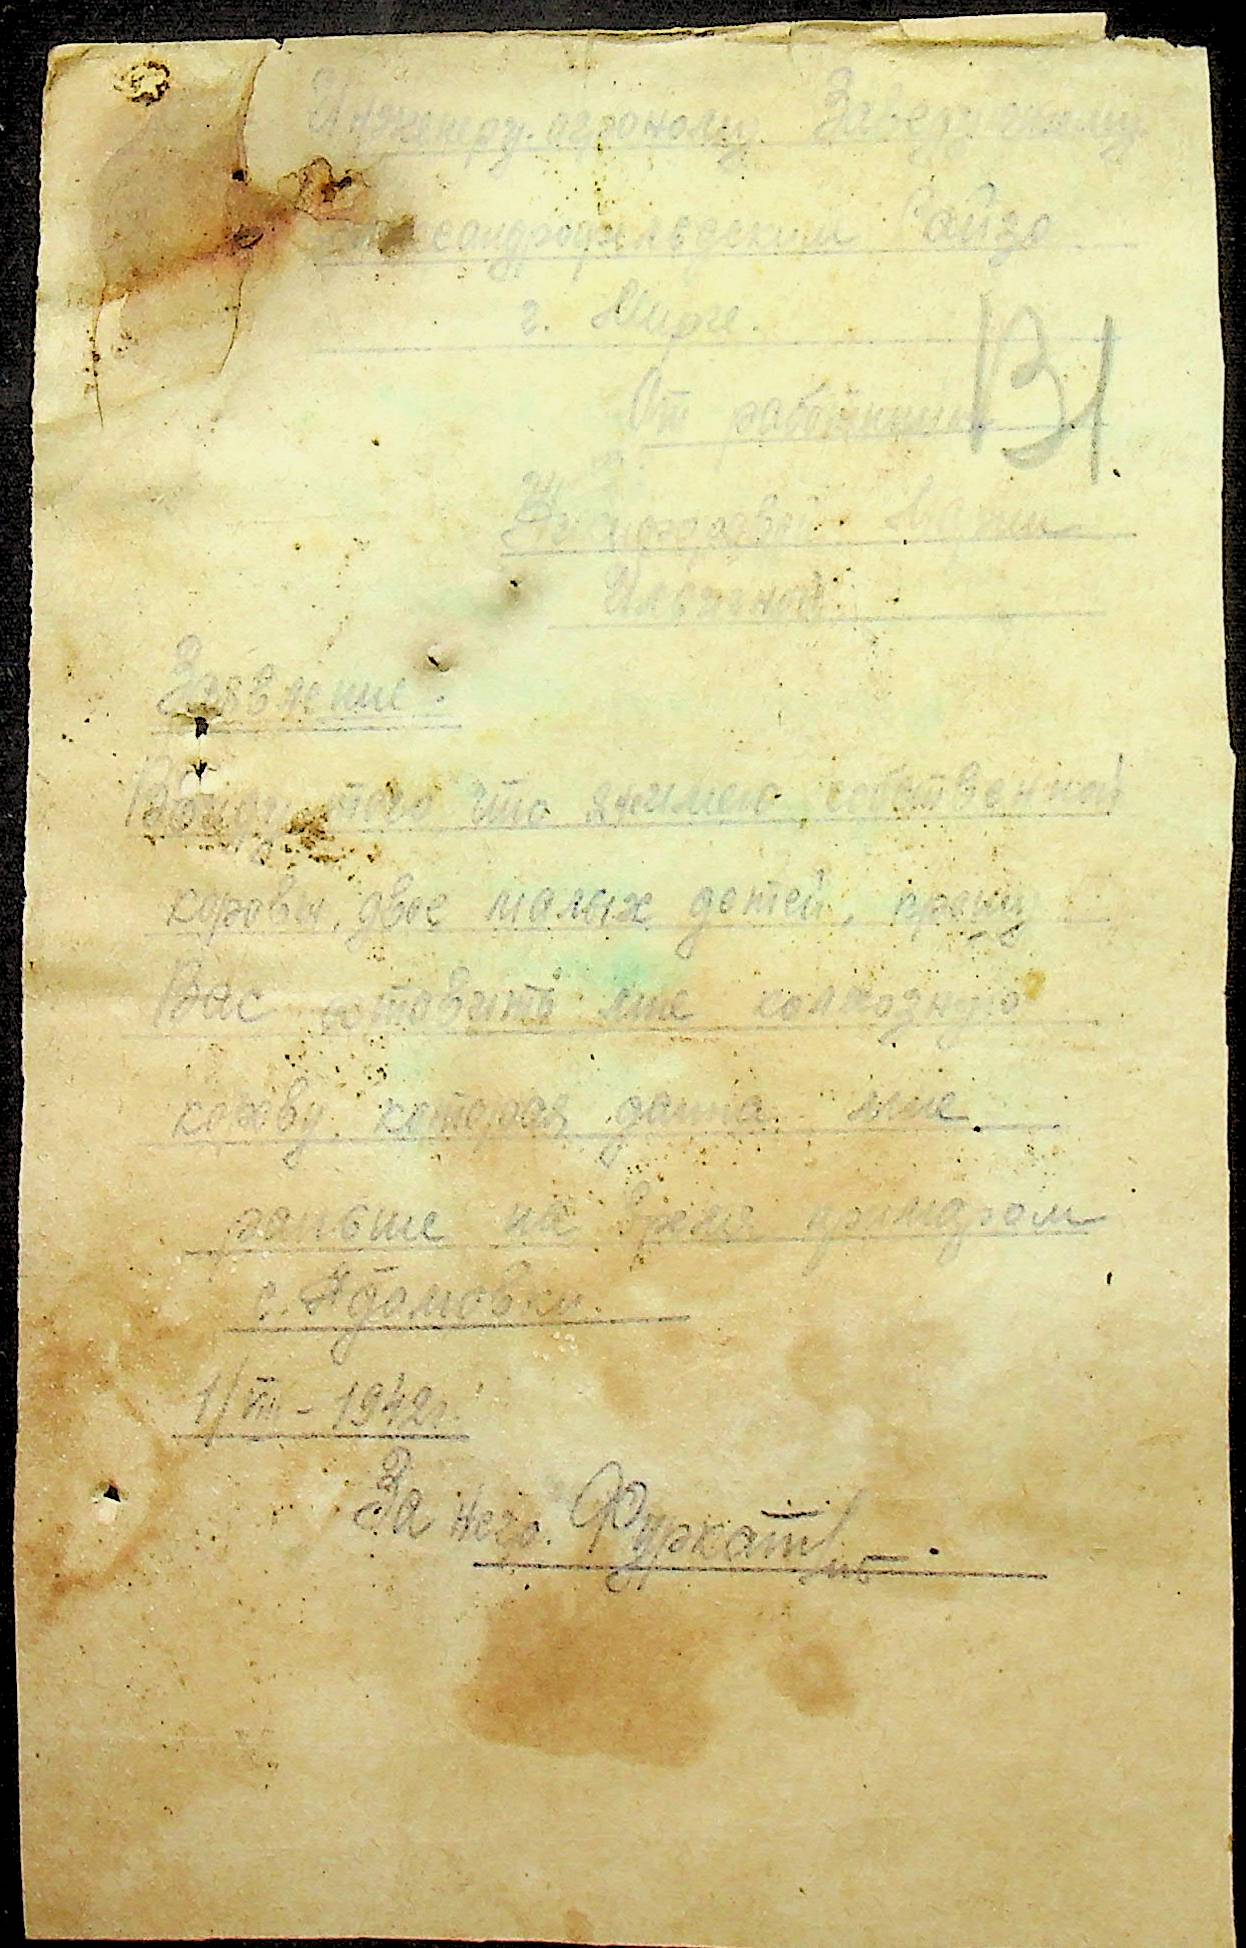 Инженеру-агроному Заведующему
Александрфельдским Райзо
г. Мирге.
131
От работницы
Марии
Ильиной
Заявление.
Ввиду того что я не имею собственной
коровы, двое малых детей, прошу
Вас оставить мне колхозную
корову, которая данна мне
раньше на время примаром
с. Адамовки.
1/VIII - 1942 г.
За него. Фуркат